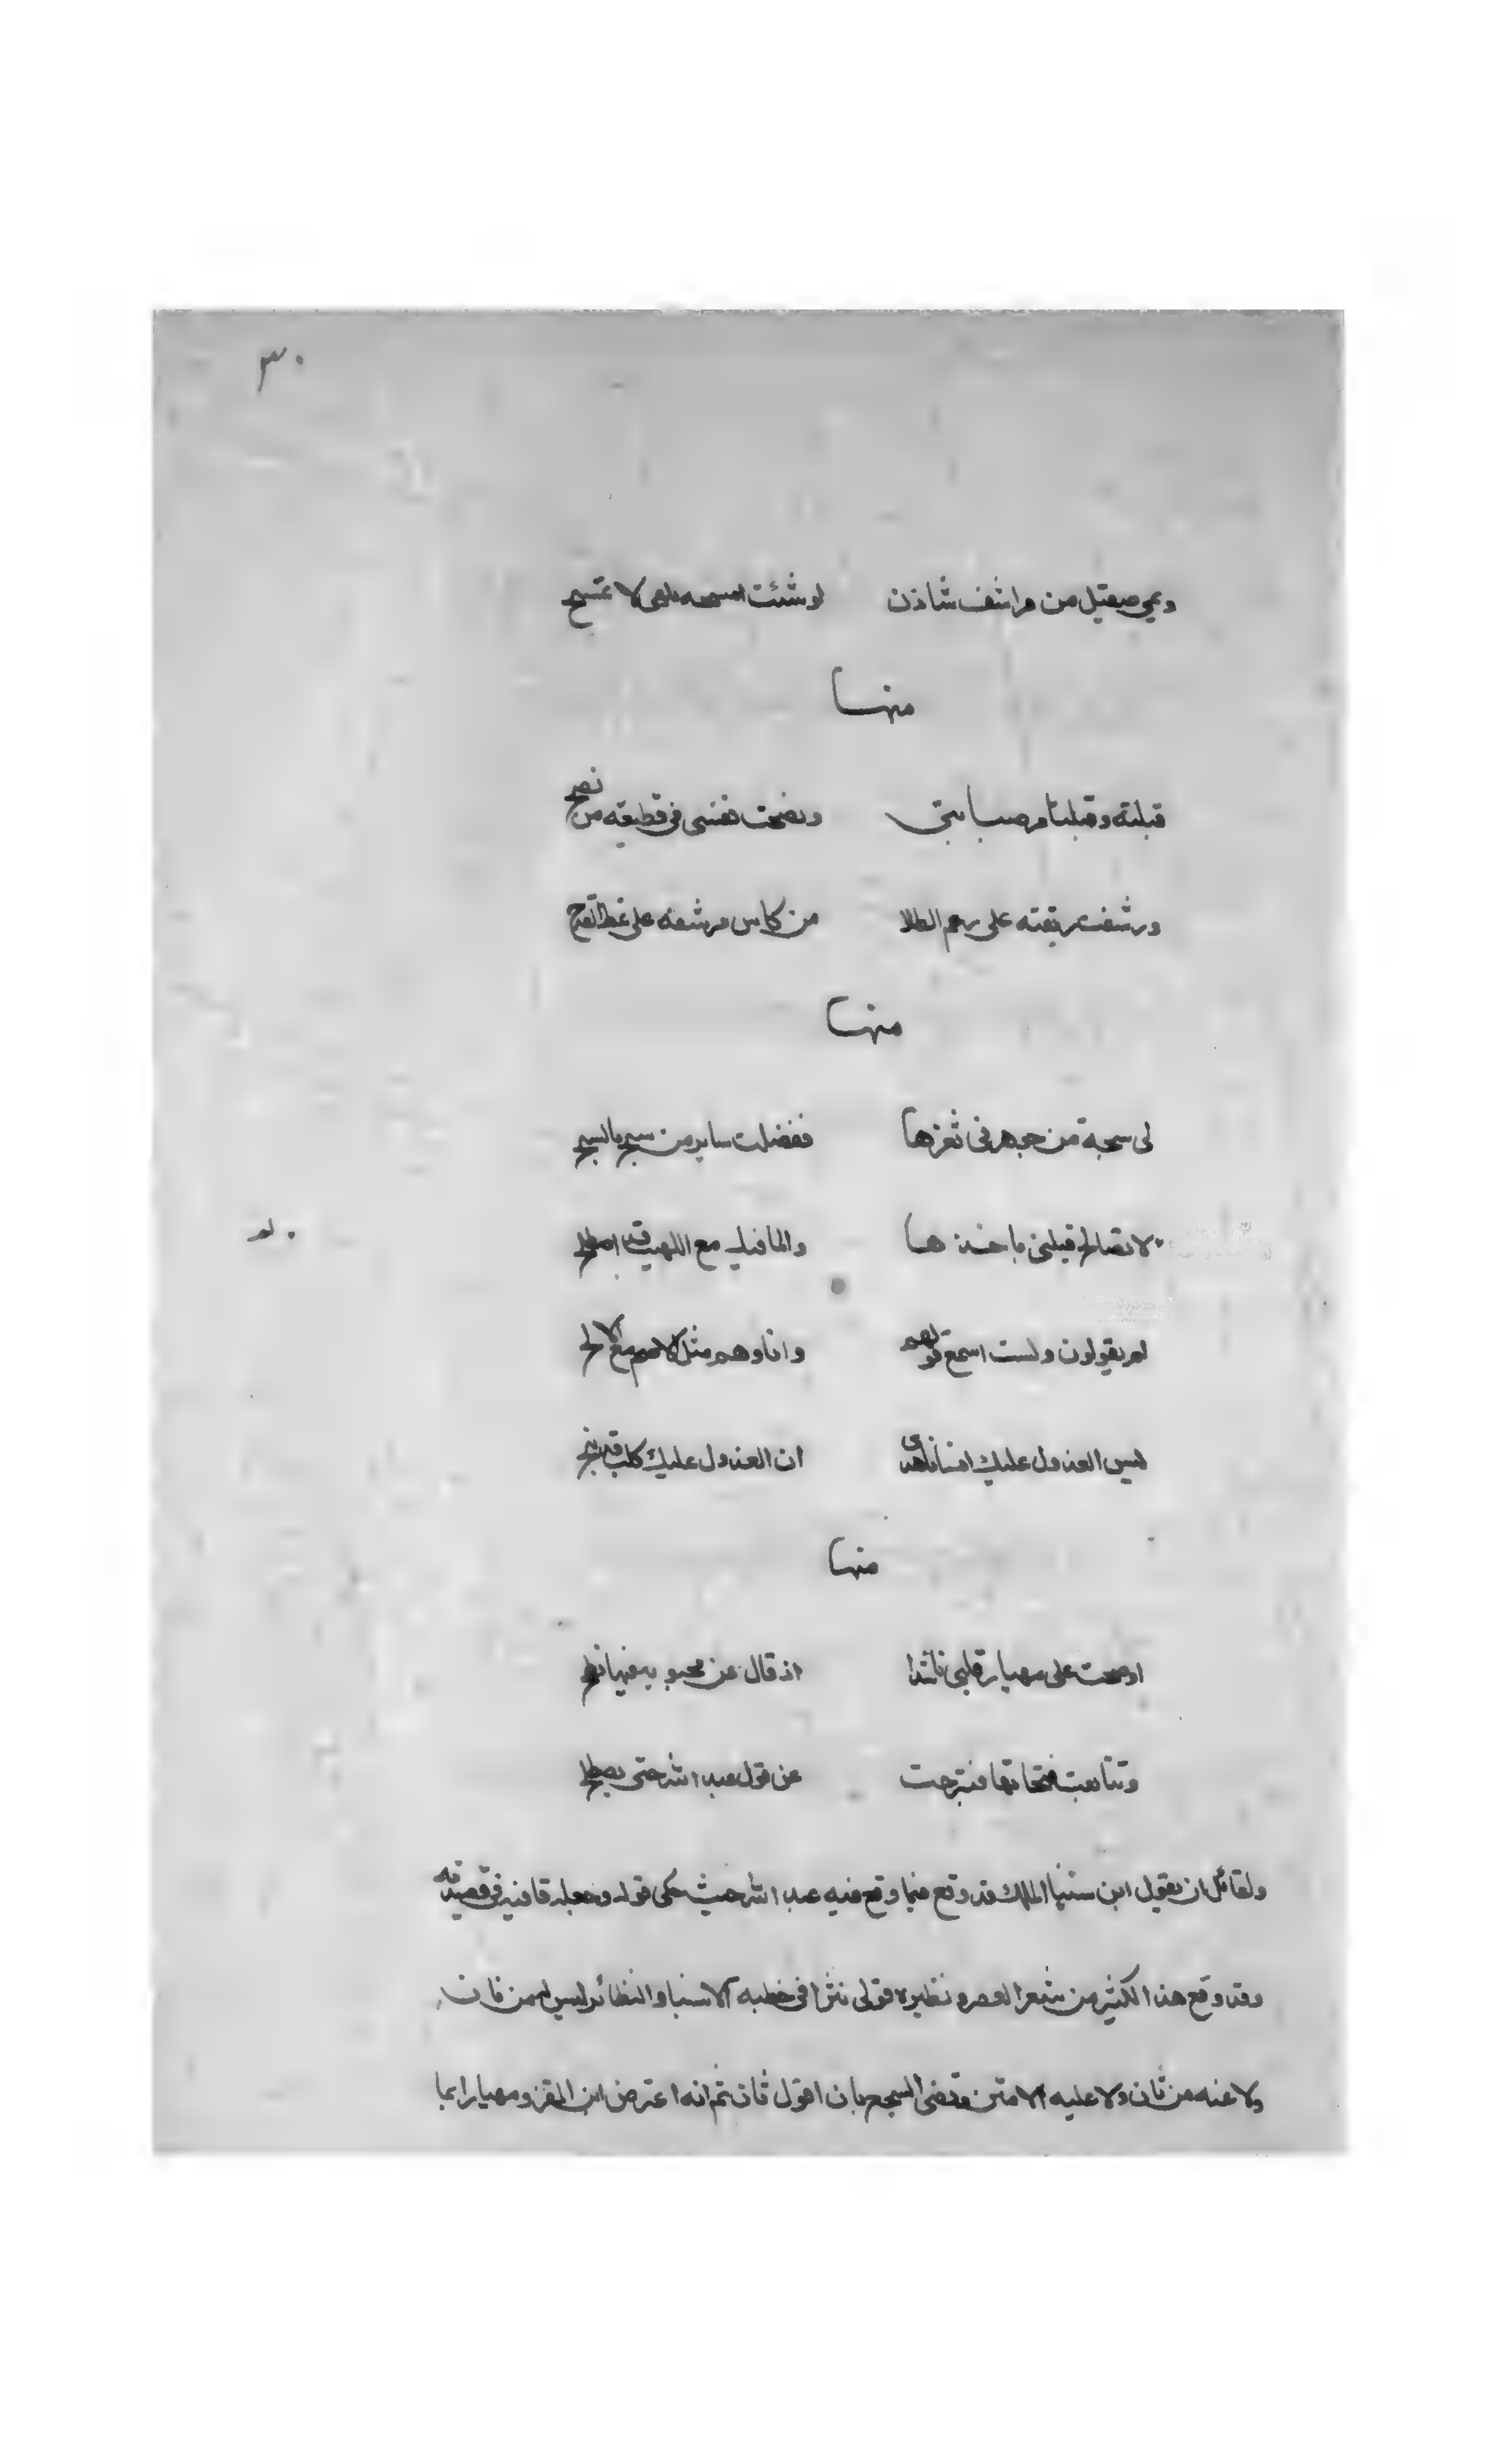 ٣٠
وبمي صقيل من مراشف شاذن لو شئت امسحه بلمى لا تمسح
منها
قبلته وقبلتا من صبابتى ونضحت نفسى فى قطيعه من نصح
ورشفت ريقته على رغم الطلا من كاس مرشفه على غيظ القدح
منها
لى سبحة من جوهر فى ثغرها ففضلت ساير من سبح بالسبح
لا تصالح قبلتى يا خدها والما فيك مع اللهيب قد اصطلح
لم يقولون ولست اسمع قولهم وانا وهم مثل الاصم مع الالح
ليس العذول عليك انسانا هدى ان العذول عليك كلب قد نبح
منها
اوضحت على مهيار قلبى ناشدا اذ قال عن محبوبه فيها نطح
وتتابعت فتحاتها فتبرحت عن قول عبد الله حتى يصطلح
ولقائل ان يقول ابن سنيا الملك قد وقع فيما وقع فيه عبد الله حيث حكى قوله وجعله قافيه فى قصيدته
وقد وقع هذا الكثير من شعرا العصر ونظيره قولى نثرا فى خطبه الاشباه والنظائر ليس لمن فان
ولا عنه من ثان ولا عليه الا متن وقضى السجع بان اقول ثان ثم انه اعترض ابن المقز ومهيارا بما